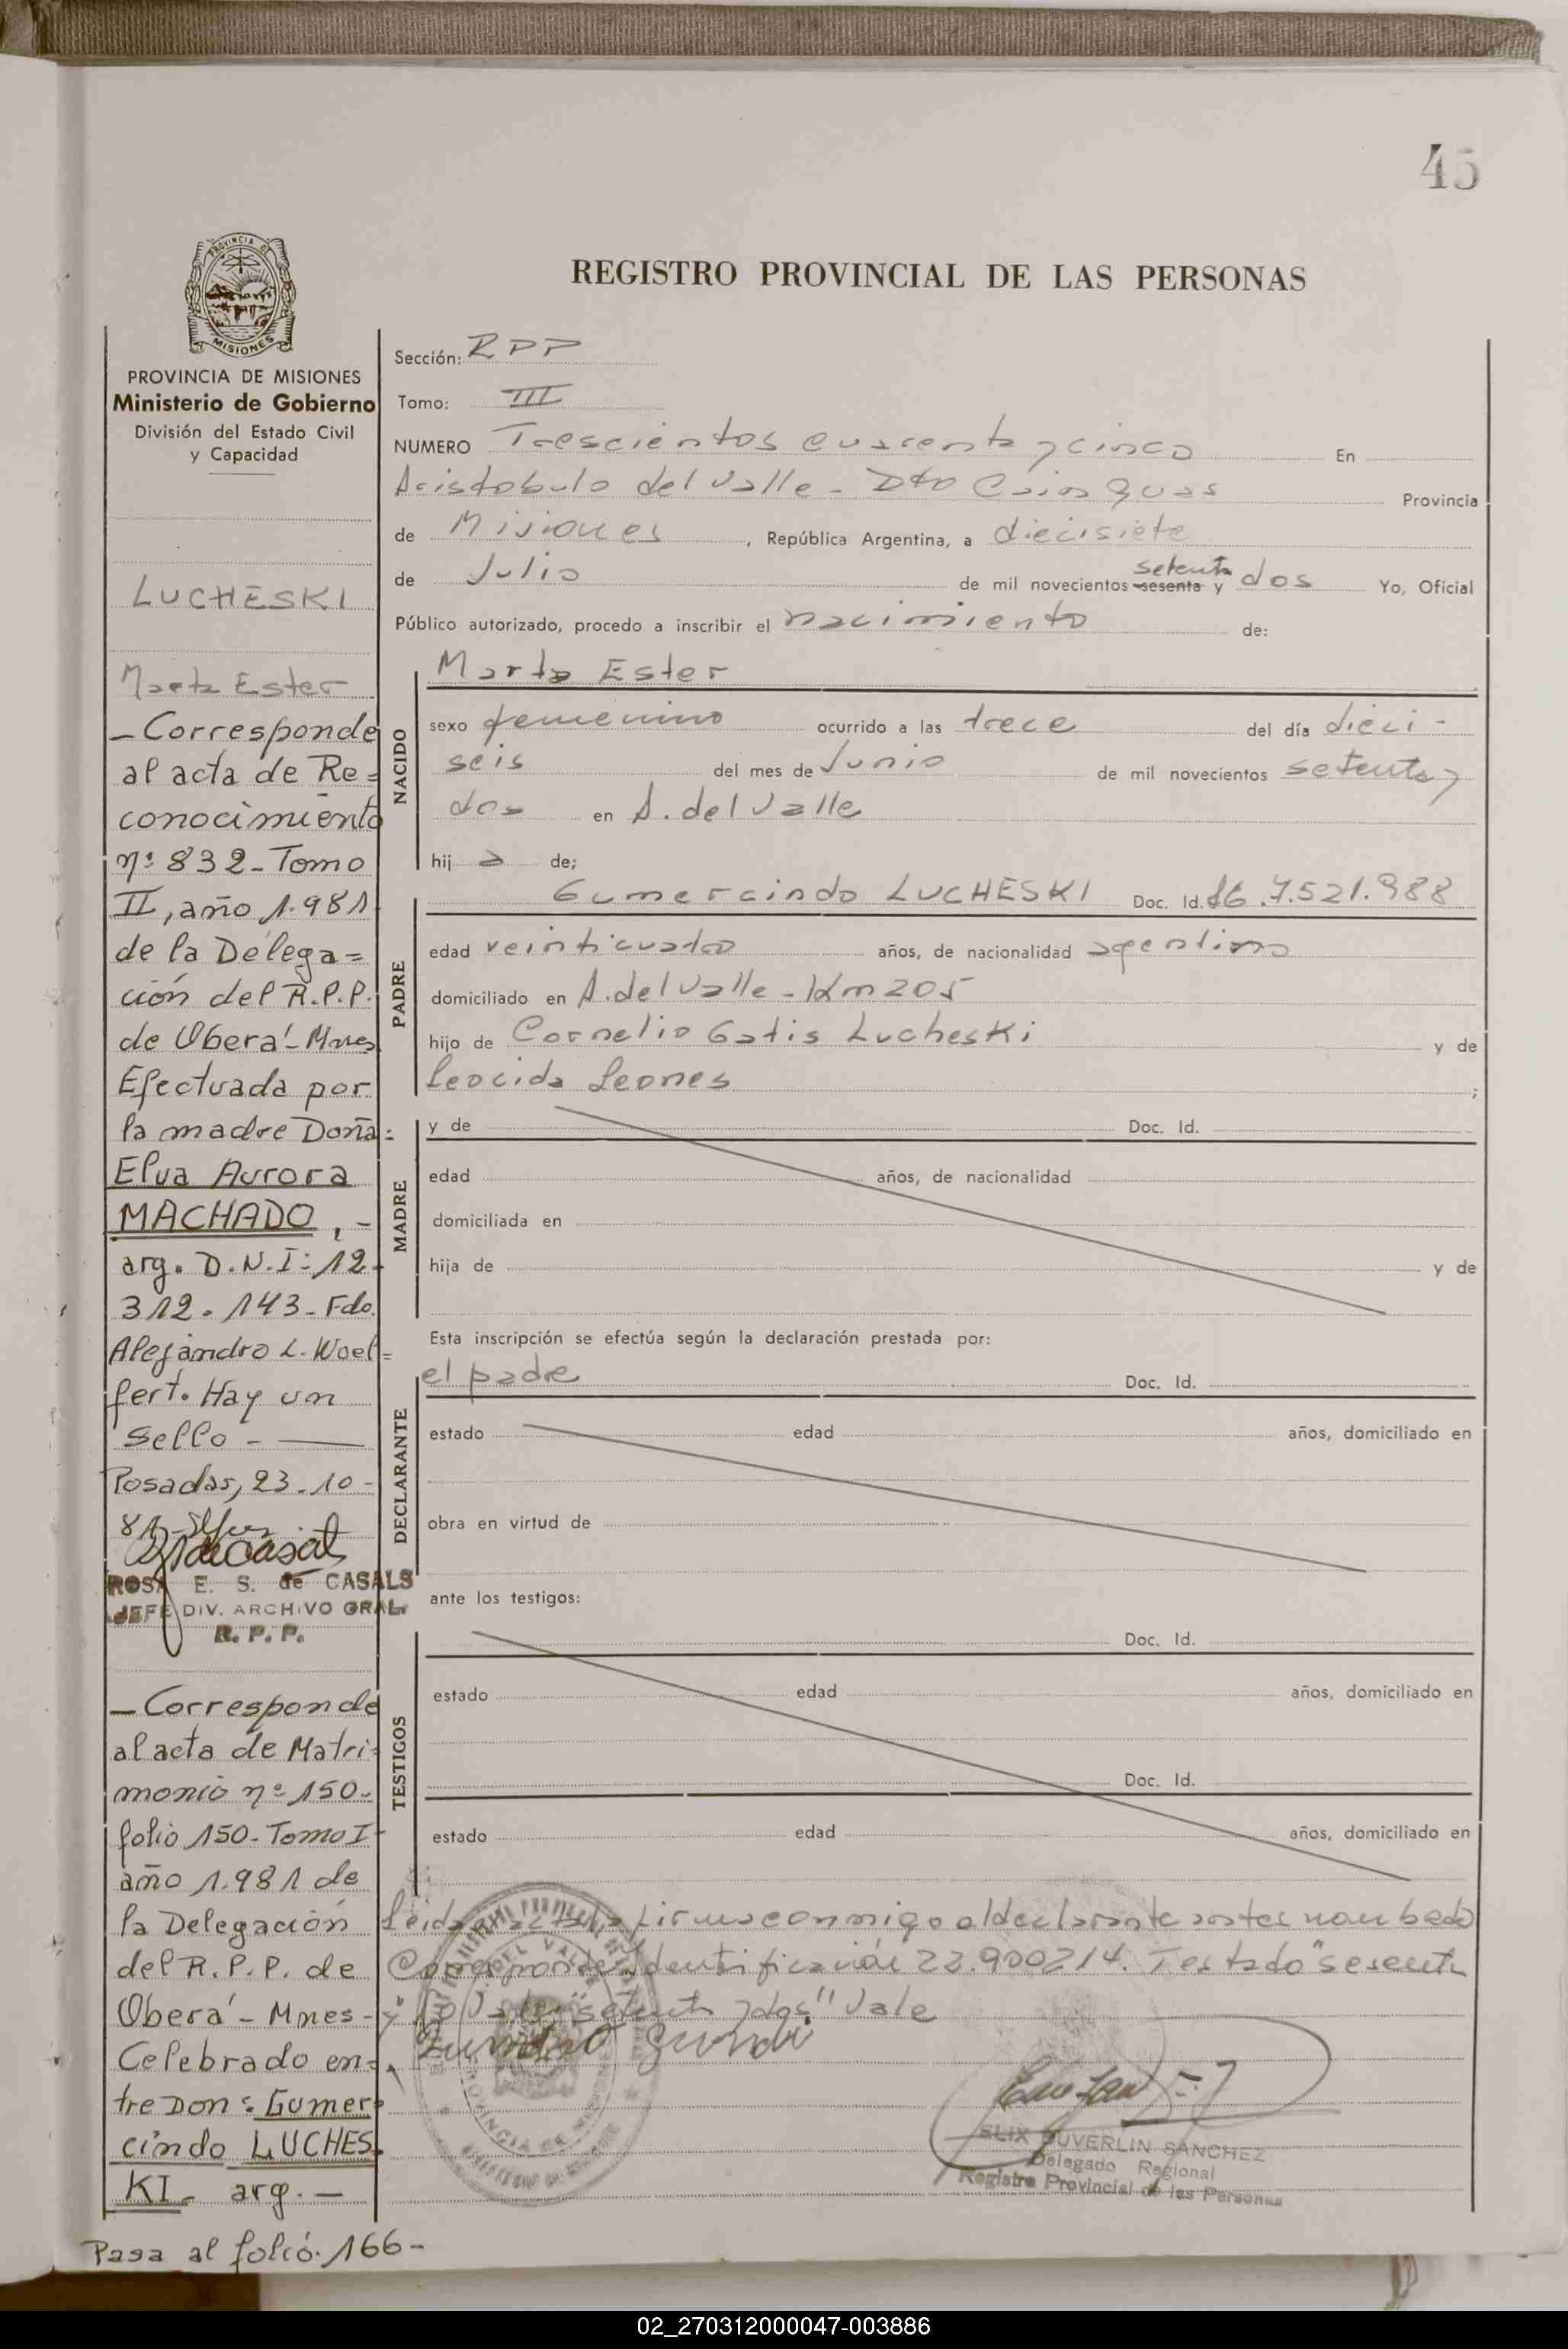 45
PROVINCIA DE
MISIONES
PROVINCIA DE MISIONES
Ministerio de Gobierno
División del Estado Civil
y Capacidad
LUCHESKI
Marta Ester
- Corresponde
al acta de Re=
conocimiento
nº 832 - Tomo
II, año 1.981
de la Delega=
ción del R.P.P.
de Oberá - Mnes
Efectuada por
la madre Doña:
Elva Aurora
MACHADO, -
arg. D.N.I: 12.
312.143 - Fdo.
Alejandro L. Woel=
fert. Hay un
sello -
Posadas, 23.10-
81-
ROSA E. S. de CASALS
JEFE DIV. ARCHIVO GRAL.
R. P. P.
- Corresponde
al acta de Matri=
monio nº 150-
folio 150 - Tomo I
año 1.981 de
la Delegación
del R.P.P. de
Oberá - Mnes -
Celebrado en=
tre Don: Gumer=
cindo LUCHES
KI - arg. -
Pasa al folio. 166 -
REGISTRO PROVINCIAL DE LAS PERSONAS
Sección: RPP
Tomo: III
NUMERO Trescientos cuarenta y cinco En
Aristobulo del Valle - Dto Cainguas Provincia
de Misiones, República Argentina, a diecisiete
de Julio de mil novecientos sesenta setenta y dos Yo, Oficial
Público autorizado, procedo a inscribir el nacimiento de:
Marta Ester
NACIDO
sexo femenino ocurrido a las trece del día dieci-
seis del mes de Junio de mil novecientos setenta y
dos en A. del Valle
hij a de;
Gumercindo LUCHESKI Doc. Id. 7.521.988
PADRE
edad veinticuatro años, de nacionalidad argentino
domiciliado en A. del Valle - Km 205
hijo de Cornelio Gatis Lucheski y de
Leocida Leones ;
MADRE
y de Doc. Id.
edad años, de nacionalidad
domiciliada en
hija de y de
Esta inscripción se efectúa según la declaración prestada por:
el padre Doc. Id.
DECLARANTE
estado edad años, domiciliado en
obra en virtud de
ante los testigos:
TESTIGOS
Doc. Id.
estado edad años, domiciliado en
Doc. Id.
estado edad años, domiciliado en
Leida el acta la firma conmigo el declarante antes nombrado
Corresponde Identificación 22.900214. Testado "sesenta
y" No Vale; "setenta y dos" Vale
ELIX DUVERLIN SANCHEZ
Delegado Regional
Registro Provincial de las Personas
02_270312000047-003886